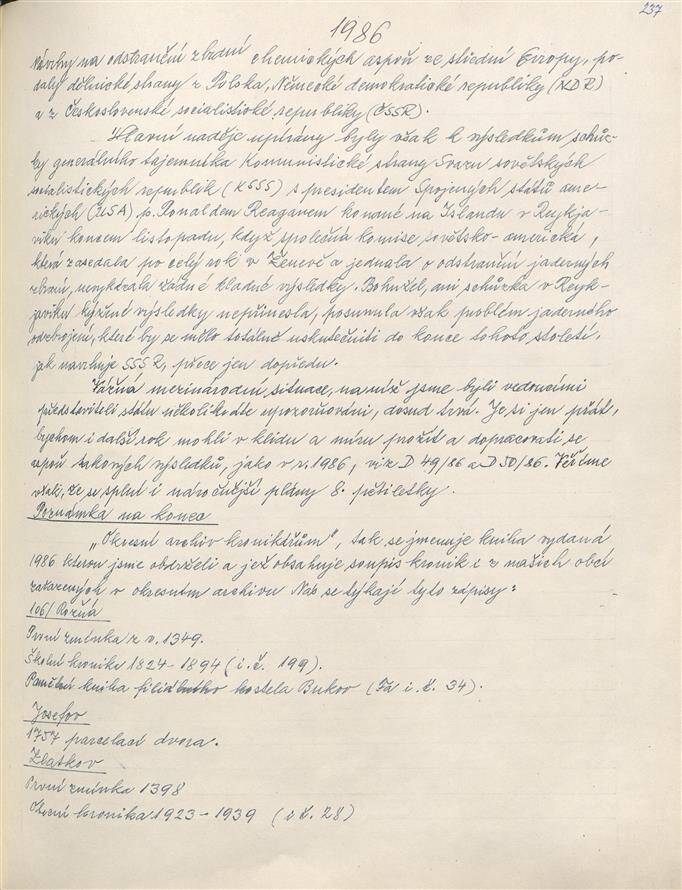 237
1986
Návrhy na odstranění zbraní chemických aspoň ze střední Evropy, po-
daly dělnické strany z Polska, Německé demokratické republiky (NDR)
a z Československé socialistické republiky (ČSSR).
Hlavní naděje upírány byly však k výsledkům schůz-
ky generálního tajemníka Komunistické strany Svazu sovětských
socialistických republik (KSSS) s presidentem Spojených států ame-
rických (USA) p. Ronaldem Reaganem konané na Islandu v Reykja-
viku koncem listopadu, když společná komise sovětsko-americká,
která zasedala po celý rok i v Ženevě a jednala o odstranění jaderných
zbraní, nevykázala žádné kladné výsledky. Bohužel, ani schůzka v Reyk-
javiku kýžené výsledky nepřinesla, posunula však problém jaderného
odzbrojení, které by se mělo totálně uskutečniti do konce tohoto století,
jak navrhuje SSSR, přece jen dopředu.
Vážná mezinárodní situace, na níž jsme byli vedoucími
představiteli státu několikráte upozorňováni, dosud trvá. Je si jen přát,
bychom i další rok mohli v klidu a míru prožít a dopracovati se
aspoň takových výsledků, jako v r. 1986, viz D 49/86 a D 50/86. Věřme
však, že se splní i náročnější plány 8. pětiletky.
Poznámka na konec
„Okresní archiv kronikářům", tak se jmenuje kniha vydaná
1986 kterou jsme obdrželi a jež obsahuje soupis kronik i z našich obcí
zařazených v okresním archivu Nás se týkají tyto zápisy:
106/ Rožná
První zmínka z r. 1349.
Školní kronika 1824-1894 (i.č. 199).
Pamětní kniha filiálního kostela Bukov (Fa i.č. 34).
Josefov
1757 parcelací dvora.
Zlatkov
První zmínka 1398
Obecní kronika 1923-1939 (i č. 28)